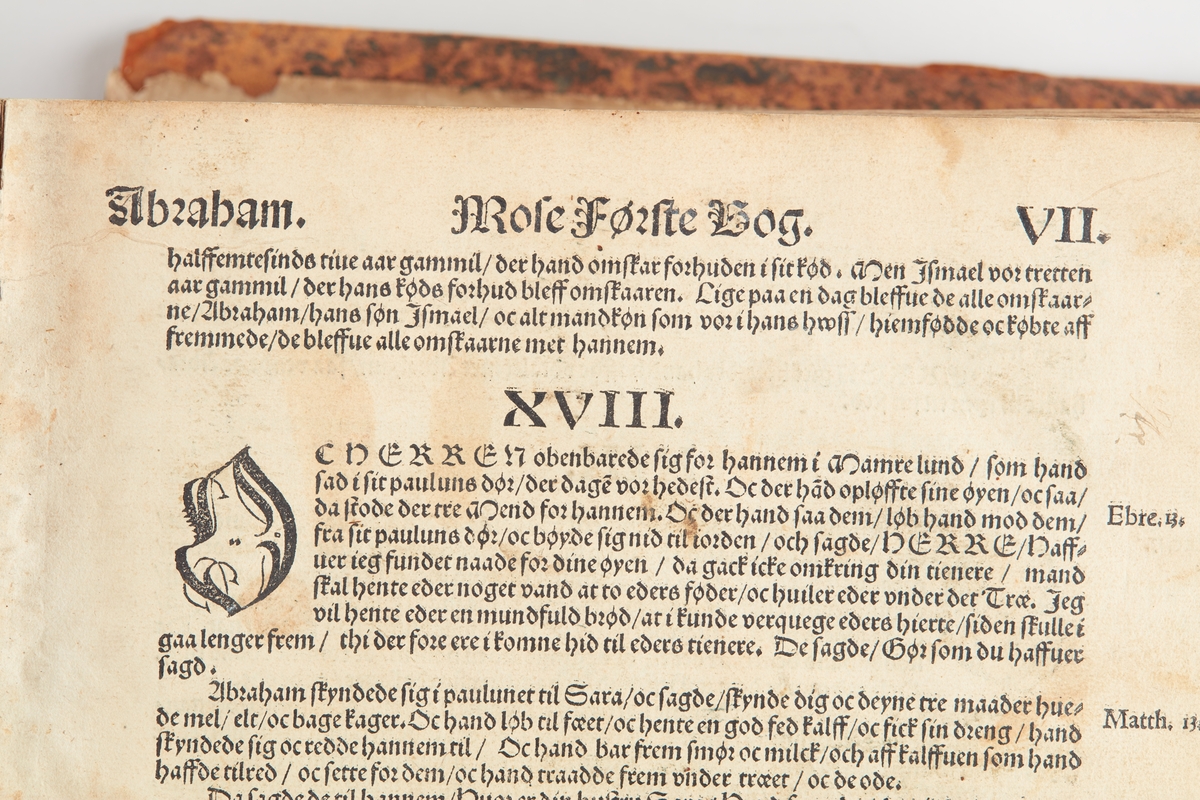 Abraham. Mose Første Bog. VII.
halffemtesinds tiue aar gammil/ der hand omskar forhuden i sit kød. Men Jsmael vor tretten
aar gammil/ der hans køds forhud bleff omskaaren. Lige paa en dag bleffue de alle omskaar⸗
ne/Abraham/hans søn Jsmael/ oc alt mandkøn som vor i hans hwss/ hiemfødde oc købte aff
fremmede/de bleffue alle omskaarne met hannem.
XVIII.
OC HERREN obenbarede sig for hannem i Mamre lund/ som hand
sad i sit pauluns dør/der dagē vor hedest. Oc der hād opløffte sine øyen/oc saa/
da stode der tre Mend for hannem. Oc der hand saa dem/ løb hand mod dem/
fra sit pauluns dør/oc bøyde sig nid til iorden/ och sagde/HERRE/Haff⸗
uer ieg fundet naade for dine øyen/ da gack icke omkring din tienere/ mand
skal hente eder noget vand at to eders føder/oc huiler eder vnder det Træ. Jeg
vil hente eder en mundfuld brød/at i kunde verquege eders hierte/siden skulle i
gaa lenger frem/ thi der fore ere i komne hid til eders tienere. De sagde/ Gør som du haffuer
sagd.
Abraham skyndede sig i paulunet til Sara/oc sagde/skynde dig oc deyne tre maader hue⸗
de mel/ elt/oc bage kager. Oc hand løb til fæet/oc hente en god fed kalff/oc fick sin dreng/ hand
skyndede sig oc redde hannem til/ Oc hand bar frem smør oc milck/och aff kalffuen som hand
haffde tilred/ oc sette for dem/oc hand traadde frem vnder træet/ oc de ode.
Ebre. 13.
Matth. 13